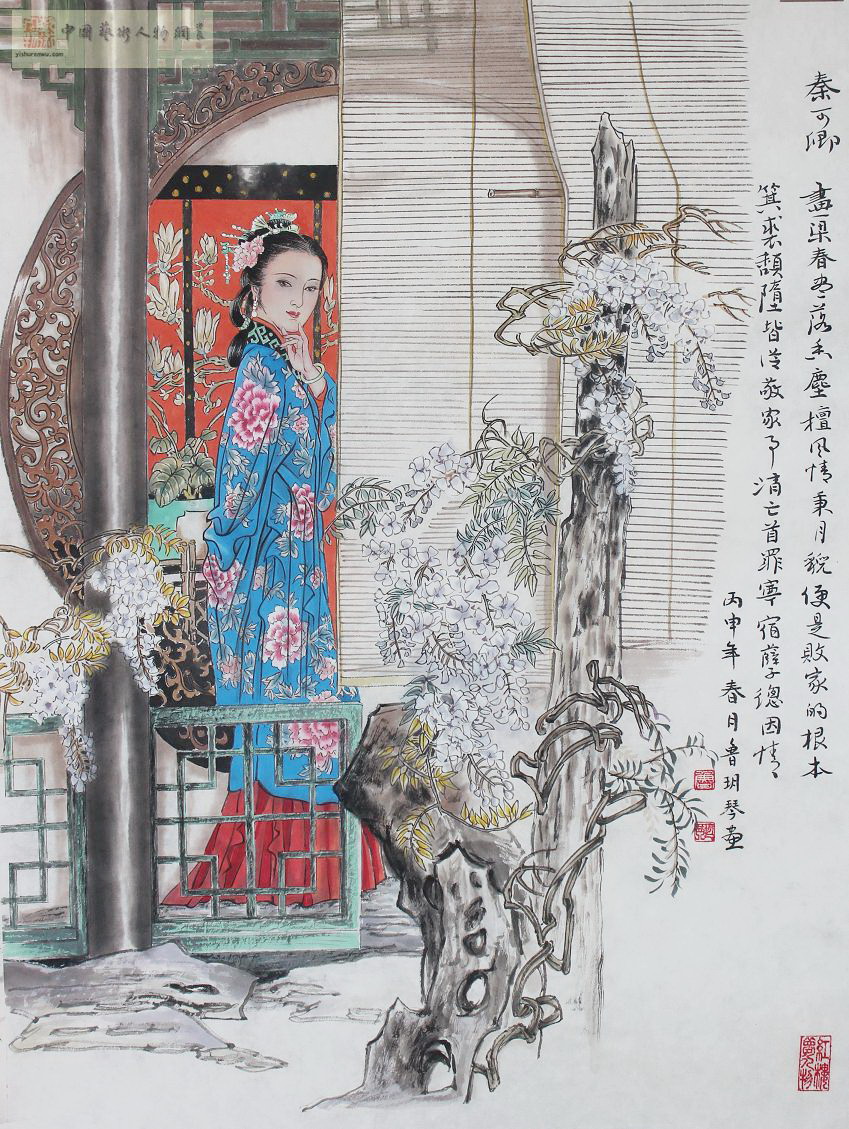 中國藝術人物網
yishurenwu.com
秦可卿 畫梁春尽落香塵檀风情秉月貌便是敗家的根本
箕裘頹墮皆從敬家事消亡首罪寧宿孽總因情
丙申年春月魯玥琴畫
紅樓夢人物